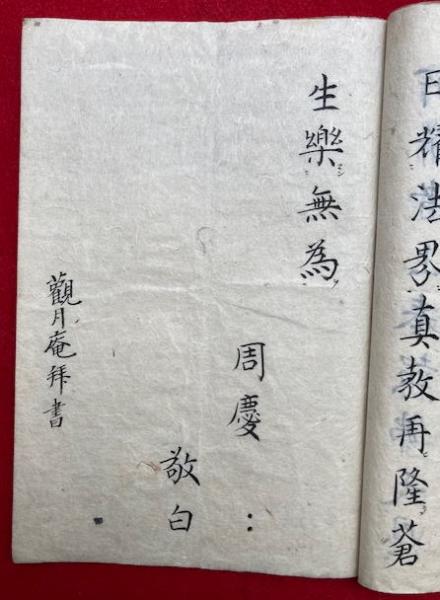 日耀法界真教再隆蒼
生樂無為
周慶
敬白
觀月庵拜書